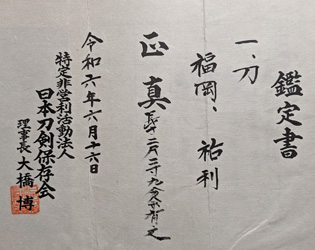 鑑定書
一、刀
福岡、祐利
正真
長サ二尺二寸九分五厘有之
令和六年六月十六日
特定非営利活動法人
日本刀剣保存会
理事長 大橋 博